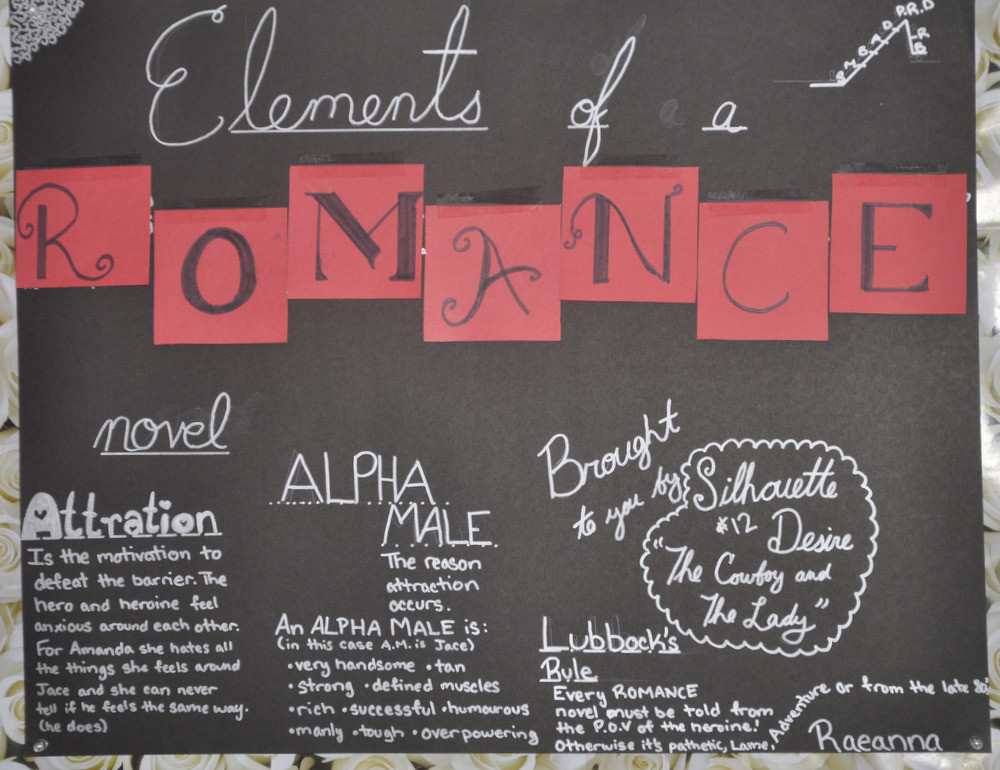 Elements of a
ROMANCE
novel
Attration
Is the motivation to
defeat the barrier. The
hero and heroine feel
anxious around each other.
For Amanda she hates all
the things she feels around
Jace and she can never
tell if he feels the same way.
(he does)
ALPHA
MALE
The reason
attraction
occurs.
An ALPHA MALE is:
(in this case A.M. is Jace)
•very handsome •tan
•strong •defined muscles
•rich •successful •humourous
•manly •tough •overpowering
Brought
to you by
Silhouette
#12 Desire
"The Cowboy and
The Lady"
Lubbock's
Rule
Every ROMANCE
novel must be told from
the P.O.V of the heroine!
Otherwise it's pathetic, Lame,
Adventure or from the late 80s
Raeanna
P.R.D